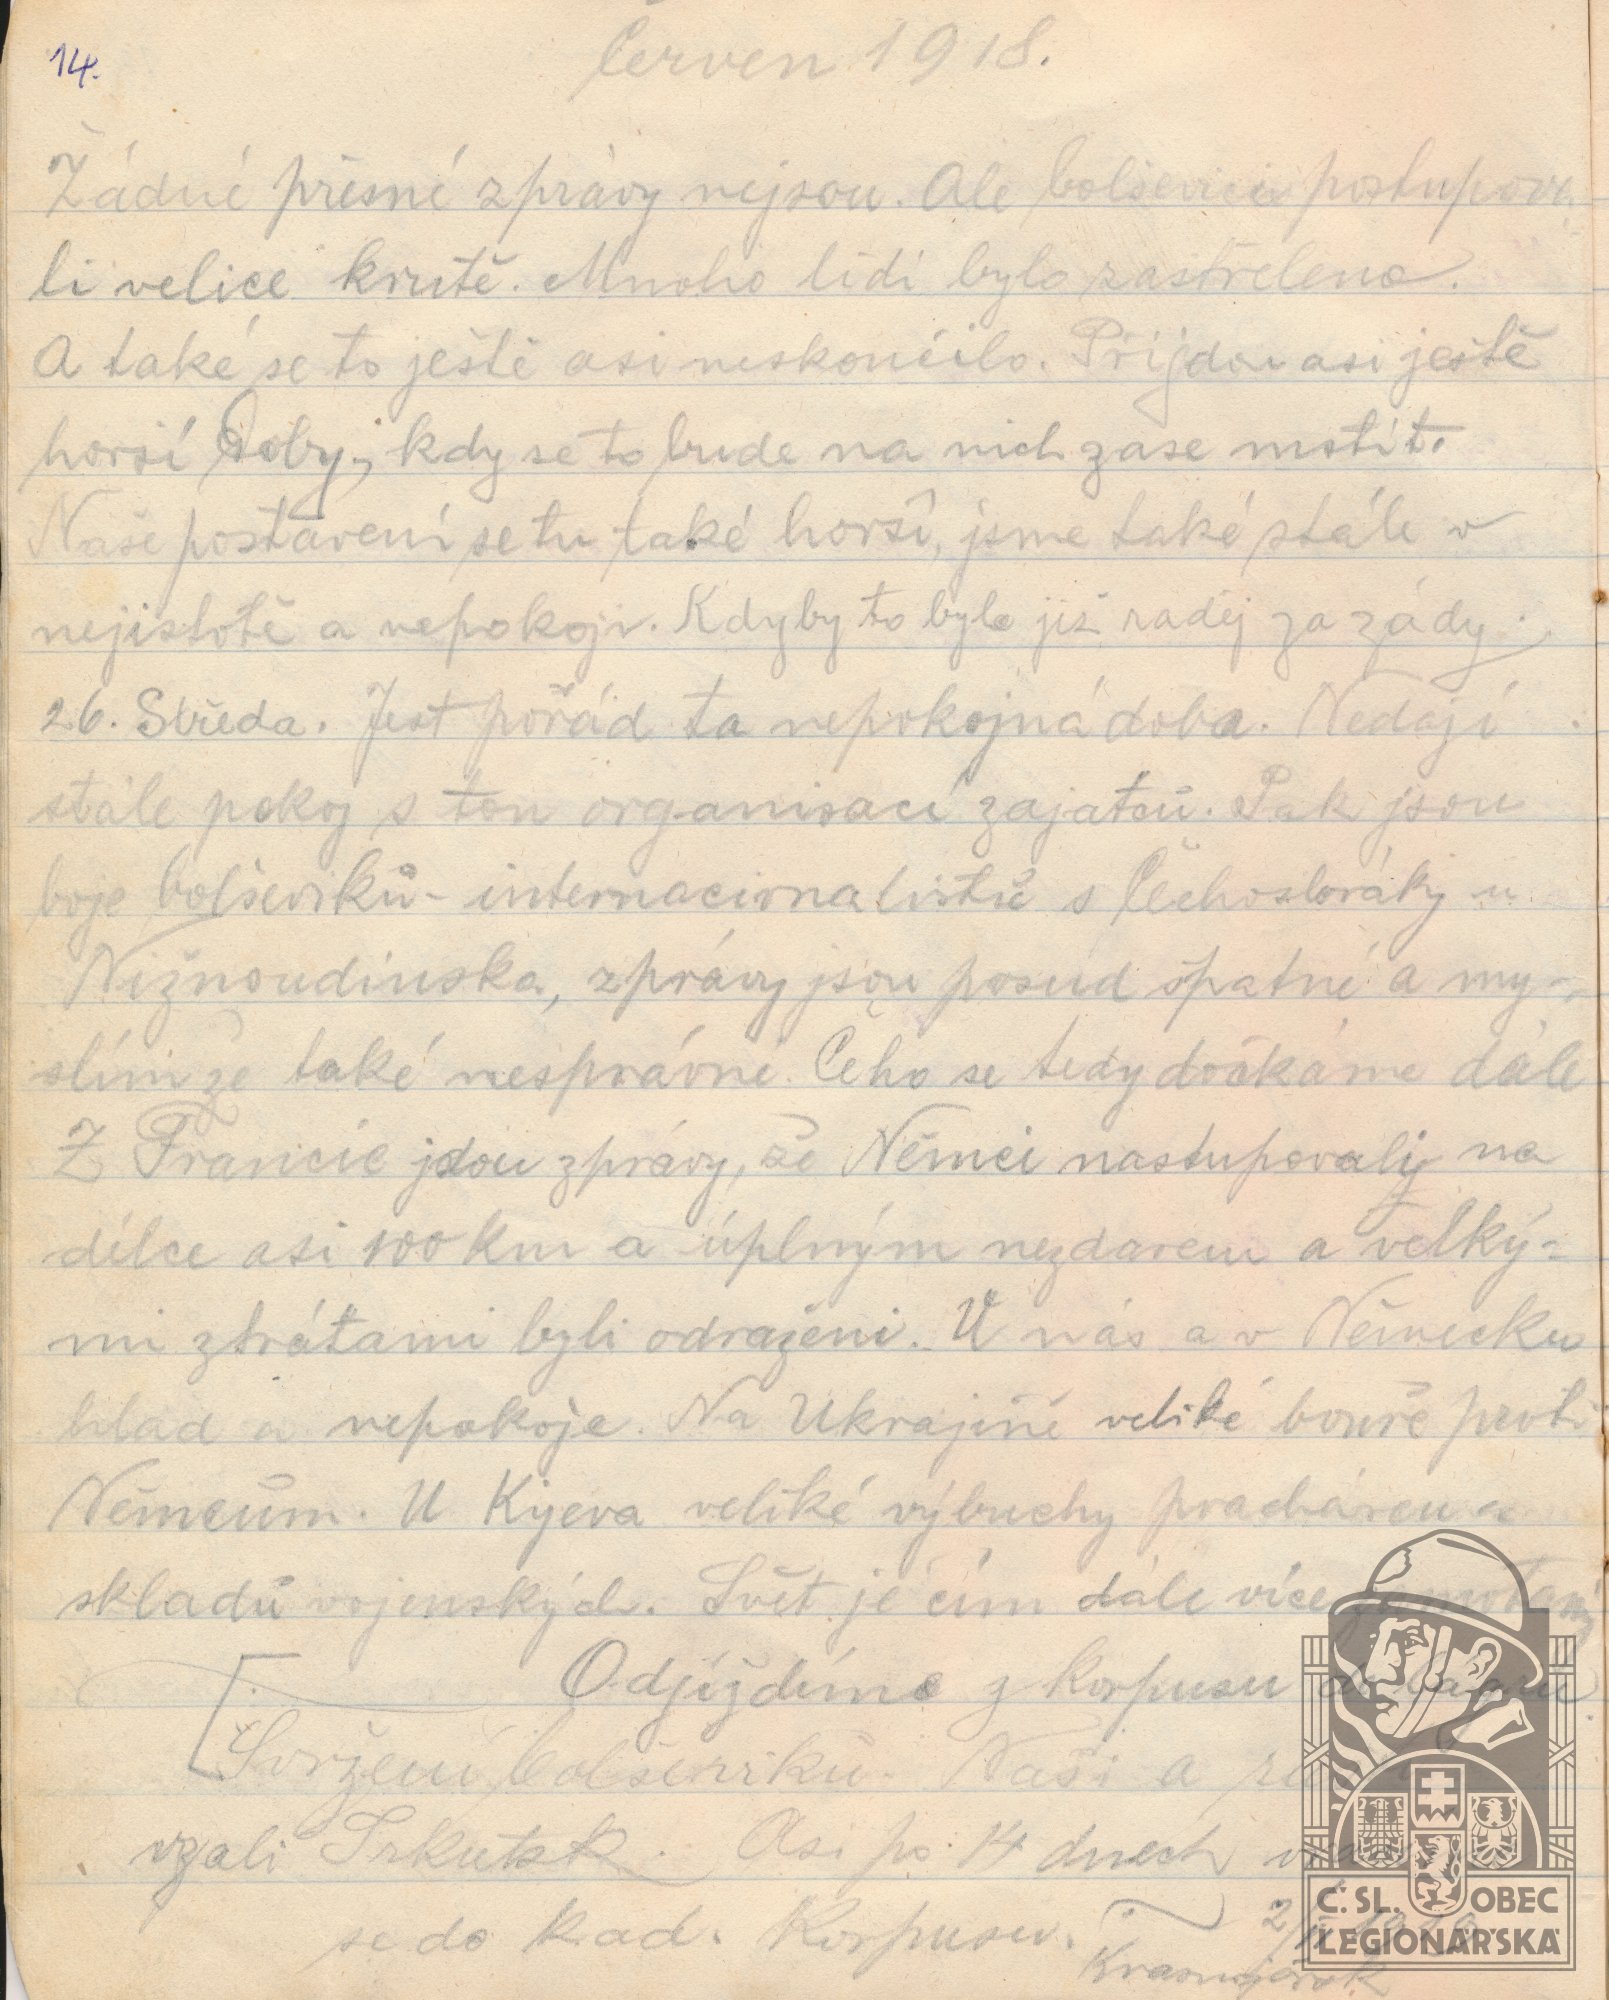 14.
Červen 1918.
Žádné přesné zprávy nejsou. Ale bolševici postupova-
li velice krutě. Mnoho lidí bylo zastřeleno.
A také se to ještě asi neskončilo. Přijdou asi ještě
horší doby, kdy se to bude na nich zase mstít.
Naše postavení se tu také horší, jsme také stále v
nejistotě a nepokoji. Kdyby to bylo již raděj za zády.
26. Středa. Jest pořád ta nepokojná doba. Nedají
stále pokoj s tou organisací zajatců. Pak jsou
boje bolševiků - internacionalistů s Čechoslováky u
Nižnoudinska, zprávy jsou posud špatné a my-
slím že také nesprávné. Čeho se tedy dočkáme dále
Z Francie jdou zprávy, že Němci nastupovali na
délce asi 100 km a úplným nezdarem a velký-
mi ztrátami byli odraženi. U nás a v Německu
hlad a nepokoje. Na Ukrajině veliké bouře proti
Němcům. U Kyjeva veliké výbuchy prachárcu a
skladů vojenských. Svět je čím dále více
Odjíždíme z korpusu do lágru.
Svržení bolševiků. Naši a
vzali Irkutsk. Asi po 14 dnech
se do kad. Korpusu.
Krasnojarsk
Č. SL. OBEC
LEGIONÁŘSKÁ